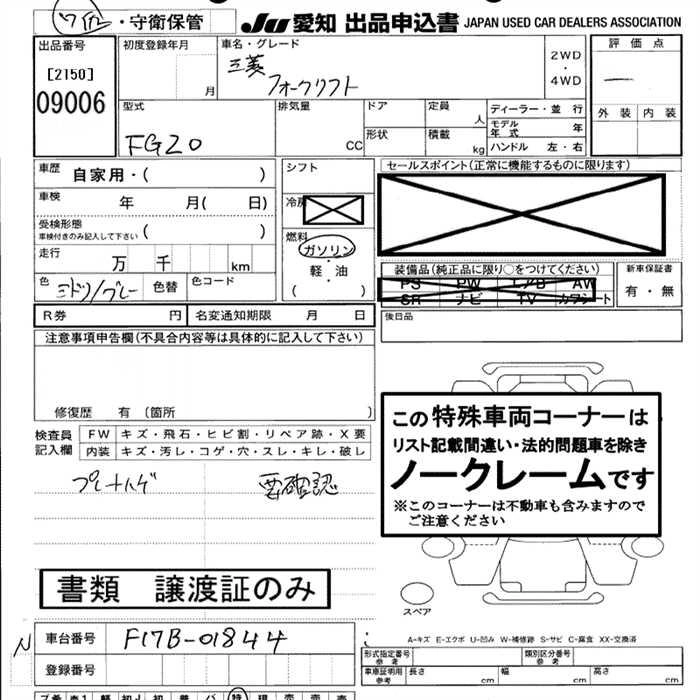 ・守衛保管
JU 愛知 出品申込書 JAPAN USED CAR DEALERS ASSOCIATION
出品番号
[2150]
09006
初度登録年月
月
車名・グレード
三菱
フォークリフト
2WD
・
4WD
評価点
外装 内装
型式
FG20
排気量
CC
ドア
形状
定員
人
積載
kg
ディーラー・並 行
モデル年式 年
ハンドル 左・右
車歴
自家用・( )
車検 年 月( 日)
受検形態
車検付きのみ記入して下さい ( )
走行 万 千 km
色 ミドリ/グレー 色替 色コード
シフト
冷房
燃料
ガソリン
・
軽・油
( )
セールスポイント(正常に機能するものに限ります)
装備品(純正品に限り○をつけてください)
PS PW エアB AW
SR ナビ TV カワシート
新車保証書
有・無
R券 円 名変通知期限 月 日
後日品
注意事項申告欄(不具合内容等は具体的に記入して下さい)
修復歴 有 〔箇所 〕
検査員記入欄
FW キズ・飛石・ヒビ割・リペア跡・X要
内装 キズ・汚レ・コゲ・穴・スレ・キレ・破レ
プレートハゲ 要確認
この特殊車両コーナーは
リスト記載間違い・法的問題車を除き
ノークレームです
※このコーナーは不動車も含みますので
ご注意ください
書類 譲渡証のみ
スペア
A-キズ E-エクボ U-凹み W-補修跡 S-サビ C-腐食 XX-交換済
N
車台番号 F17B-01844
登録番号
形式指定番号 参考
類別区分番号 参考
車庫証明用 参考 長さ cm 幅 cm 高さ cm